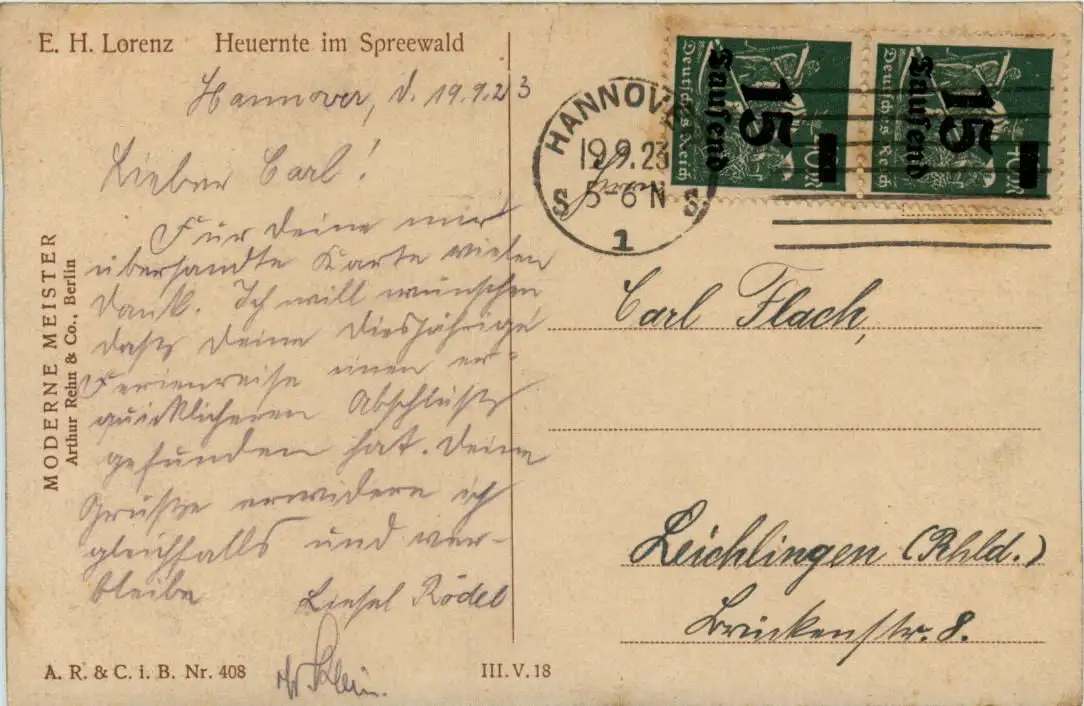 E. H. Lorenz Heuernte im Spreewald
Hannover, d. 19.9.23
Lieber Carl!
Für deine mir
übersandte Karte vielen
Dank. Ich will wünschen
daß deine diesjährige
Ferienreise einen er-
quicklicheren Abschluß
gefunden hat. Deine
Grüße erwidere ich
gleichfalls und ver-
bleibe
Liesel Rödel
Klein.
MODERNE MEISTER
Arthur Rehn & Co., Berlin
A. R. & C. i. B. Nr. 408
III. V. 18
HANNOVER
19.9.23
5-6 N
S S
1
Deutsches Reich
15
Tausend
40M
Deutsches Reich
15
Tausend
40M
Herrn
Carl Flach,
Leichlingen (Rhld.)
Brückenstr. 8.